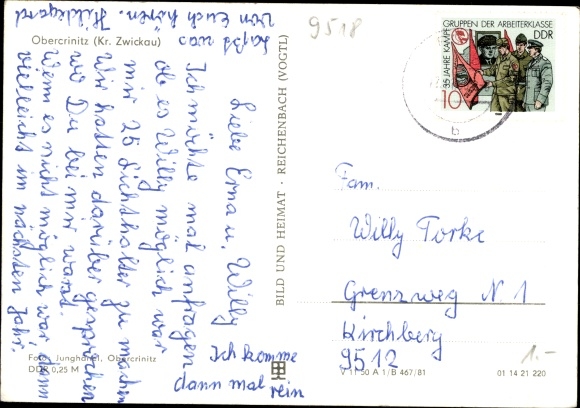 9518
Obercrinitz (Kr. Zwickau)
Liebe Erna u. Willy
Ich möchte mal anfragen
ob es Willy möglich war
mir 25 Lichthalter zu machen
Wir hatten darüber gesprochen
wo Du bei mir warst.
Wenn es nicht möglich war, dann
vielleicht im nächsten Jahr.
Laßt was
von Euch hören. Hildegard
Ich komme
dann mal
rein
Foto: Junghänel, Obercrinitz
DDR 0,25 M
BILD UND HEIMAT · REICHENBACH (VOGTL)
35 JAHRE KAMPFGRUPPEN DER ARBEITERKLASSE
DDR
10
b
Fam.
Willy Torke
Grenzweg N 1
Kirchberg
9512
1.-
V 11 50 A 1/B 467/81
01 14 21 220